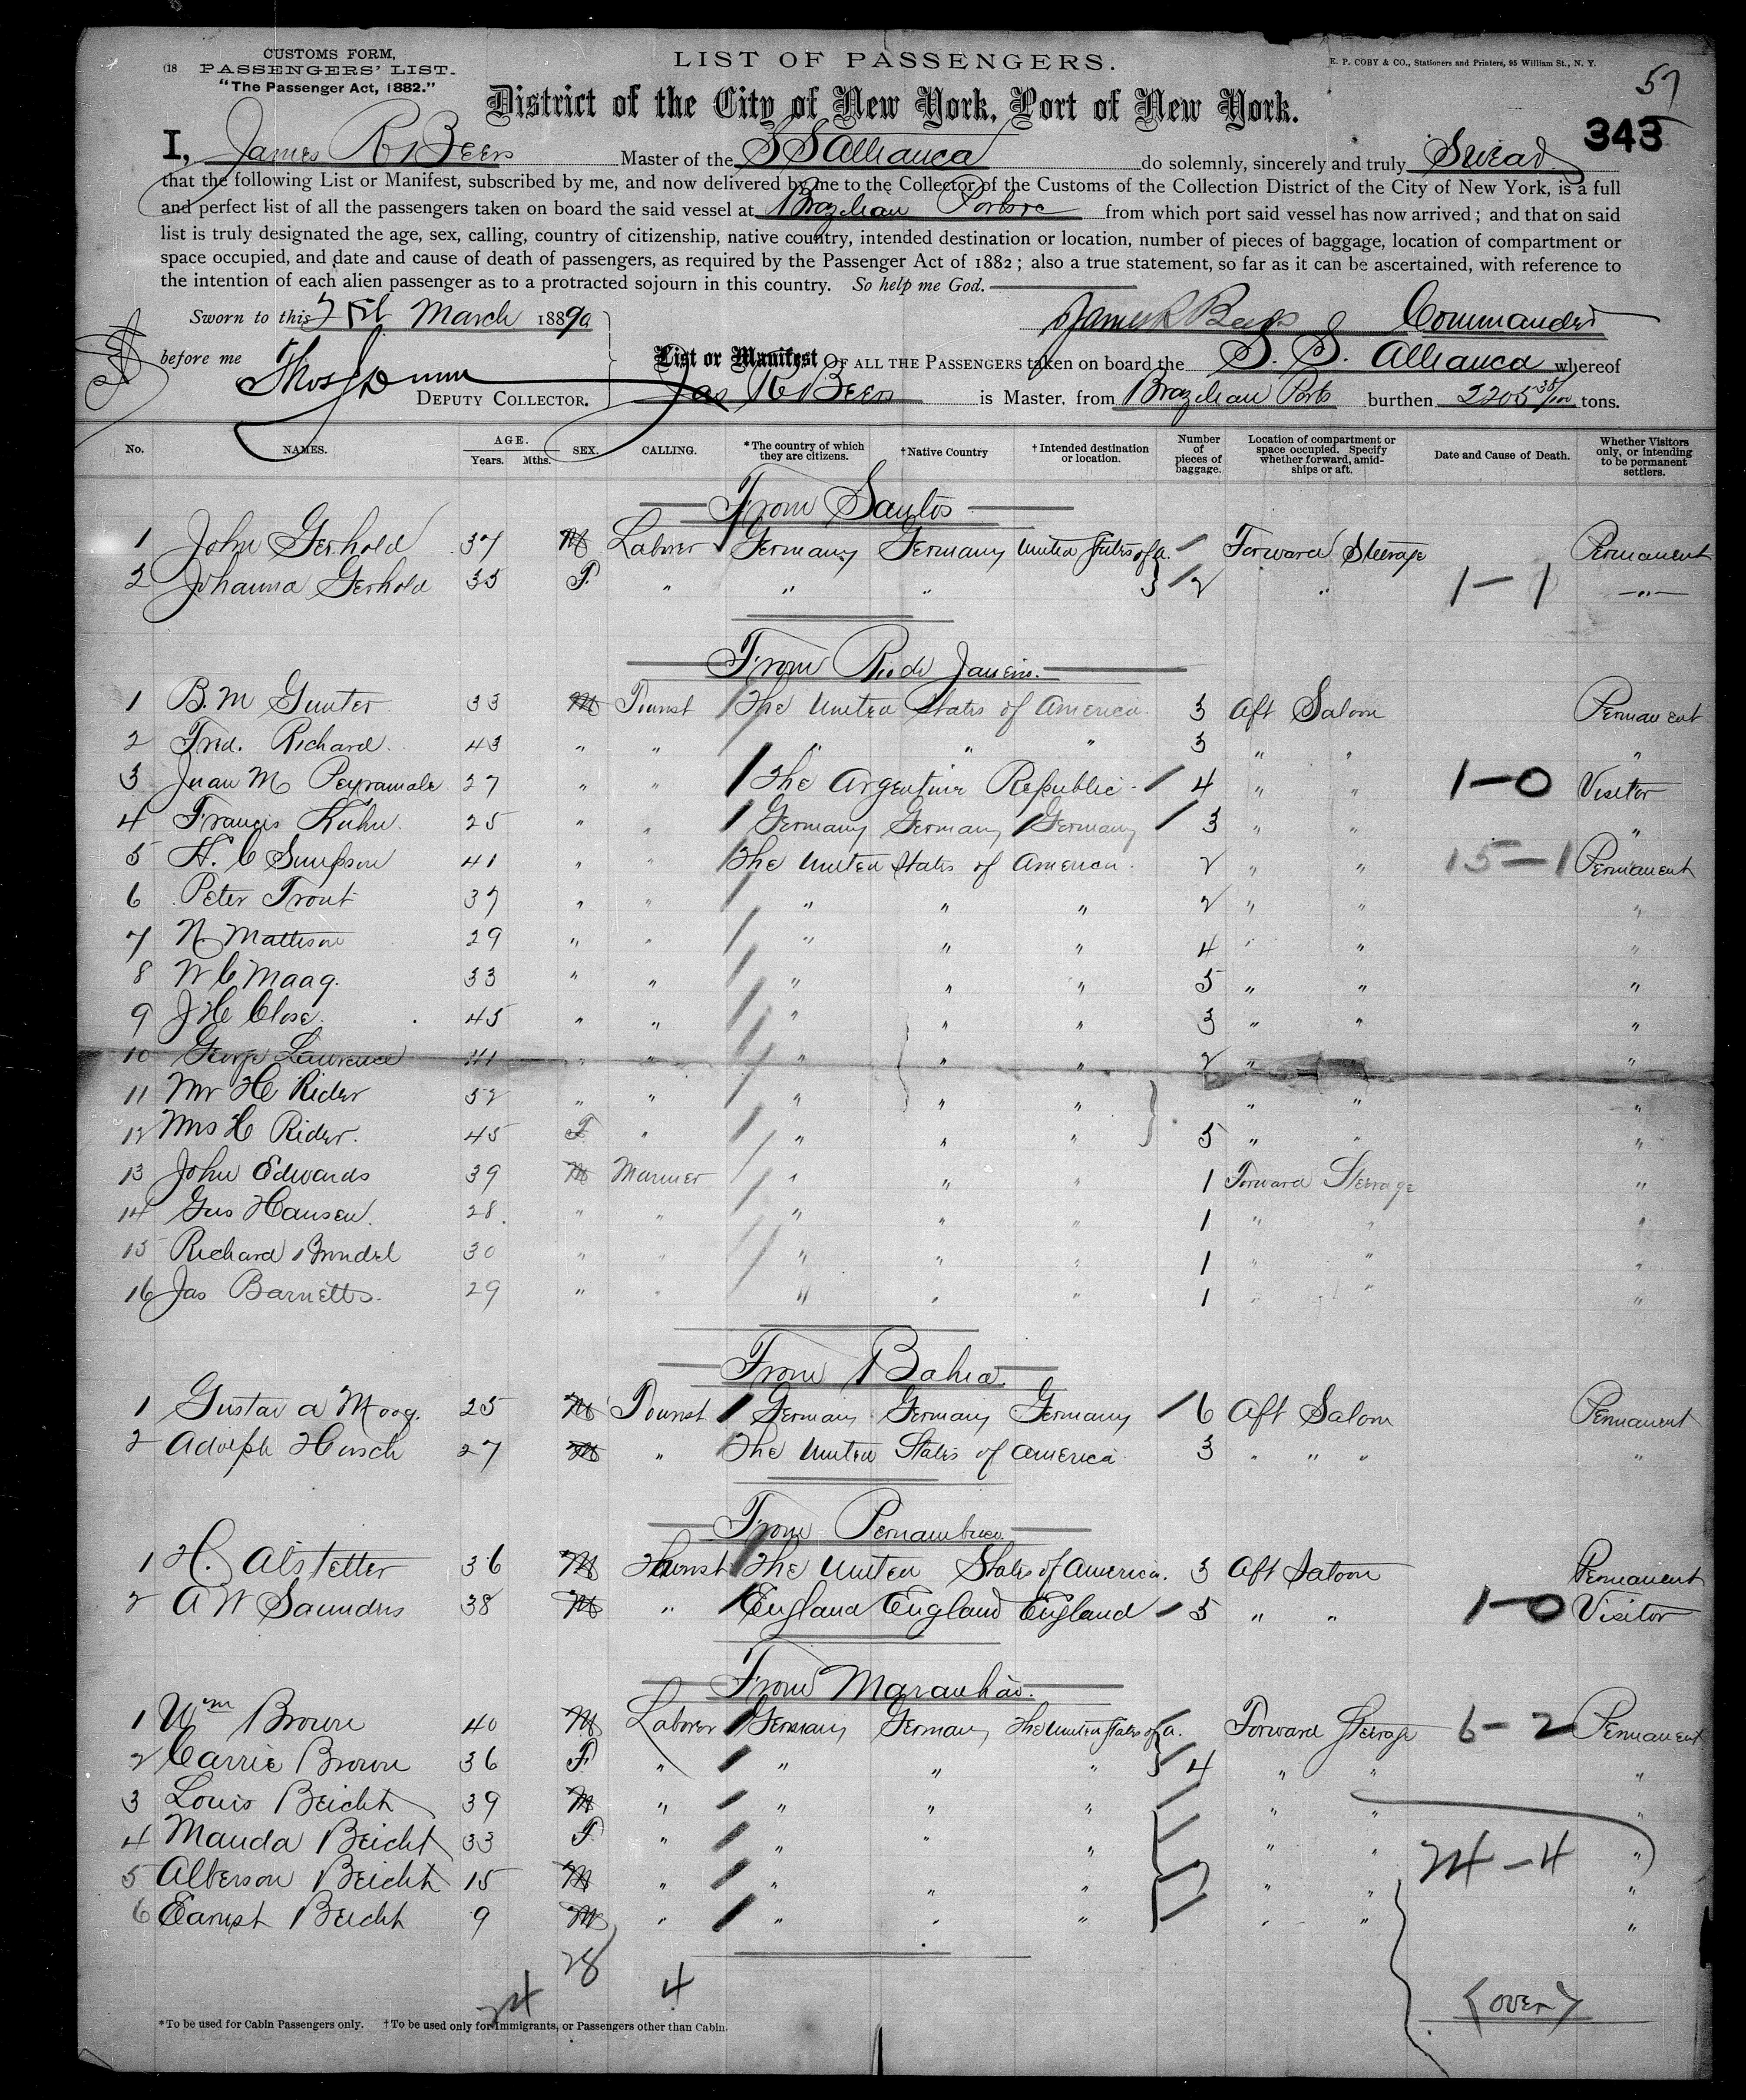 CUSTOMS FORM,
(18 PASSENGERS' LIST.
"The Passenger Act, 1882."
LIST OF PASSENGERS.
E. P. COBY & CO., Stationers and Printers, 95 William St., N. Y.
57
District of the City of New York, Port of New York.
343
I, James R Beers Master of the S S Allianca do solemnly, sincerely and truly Swear
that the following List or Manifest, subscribed by me, and now delivered by me to the Collector of the Customs of the Collection District of the City of New York, is a full
and perfect list of all the passengers taken on board the said vessel at Brazilian Ports from which port said vessel has now arrived; and that on said
list is truly designated the age, sex, calling, country of citizenship, native country, intended destination or location, number of pieces of baggage, location of compartment or
space occupied, and date and cause of death of passengers, as required by the Passenger Act of 1882; also a true statement, so far as it can be ascertained, with reference to
the intention of each alien passenger as to a protracted sojourn in this country. So help me God.
Sworn to this March 1890 James R Beers Commander
before me List or Manifest OF ALL THE PASSENGERS taken on board the S. S. Allianca whereof
DEPUTY COLLECTOR. Jas R Beers is Master, from Brazilian Ports burthen 2205 38/100 tons.
No. NAMES. AGE. Years. Mths. SEX. CALLING. *The country of which they are citizens. †Native Country †Intended destination or location. Number of pieces of baggage. Location of compartment or space occupied. Specify whether forward, amidships or aft. Date and Cause of Death. Whether Visitors only, or intending to be permanent settlers.
From Santos
1 John Gerhold 37 M Laborer Germany Germany United States of A. Forward Steerage Permanent
2 Johanna Gerhold 35 F. " " " } 2 " 1-1 "
From Rio de Janeiro.
1 B. M Gunter 33 M Tourist The United States of America. 3 Aft Saloon Permanent
2 Fred. Richard. 43 " " " " " 3 " " "
3 Juan M Peyramale 27 " " The Argentine Republic. 4 " " 1-0 Visitor
4 Francis Kuhn. 25 " " Germany Germany Germany 3 " " "
5 H. C Simpson 41 " " The United States of America. 2 " " 15-1 Permanent
6 Peter Trout 37 " " " " " 2 " " "
7 N Mattison 29 " " " " " 4 " " "
8 W C Maag. 33 " " " " " 5 " " "
9 J H Close. 45 " " " " " 3 " " "
10 George Lawrence 41 " " " " " 2 " "
11 Mr H Rider 52 " " " " " " " "
12 Mrs H Rider. 45 F " " " " } 5 " " "
13 John Edwards 39 M Mariner " " " 1 Forward Steerage "
14 Gus Hansen. 28. " " " " " 1 " " "
15 Richard Brindel 30 " " " " " 1 " " "
16 Jas Barnetts. 29 " " " " " 1 " " "
From Bahia.
1 Gustav A Moog. 25 M Tourist Germany Germany Germany 6 Aft Saloon Permanent
2 Adolph Hirsch 27 M " The United States of America 3 " " " "
From Pernambuco.
1 H. Alstetter 36 M Tourist The United States of America. 3 Aft Saloon Permanent
2 A W Saunders 38 M " England England England 5 " " 1-0 Visitor
From Maranhão.
1 Wm Brown 40 M Laborer Germany Germany The United States of A. Forward Steerage 6-2 Permanent
2 Carrie Brown 36 F " " " " } 4 " " "
3 Louis Beicht 39 M " " " " " " "
4 Manda Beicht 33 F " " " " " " "
5 Alberson Beicht 15 M " " " " " " "
24-4
6 Earnst Beicht 9 M " " " " " " "
28
24 4
<over>
*To be used for Cabin Passengers only. †To be used only for Immigrants, or Passengers other than Cabin.